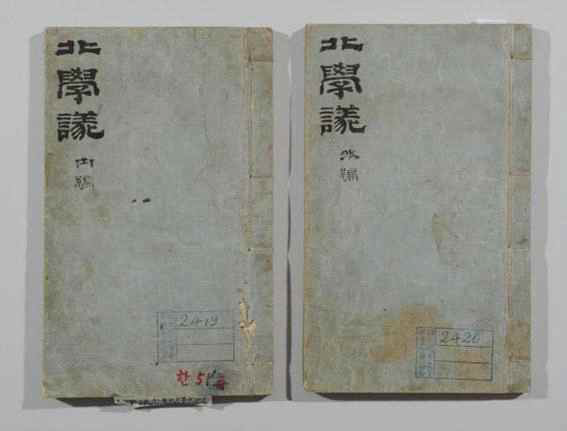 北學議
內編
2419
한
北學議
外編
2420